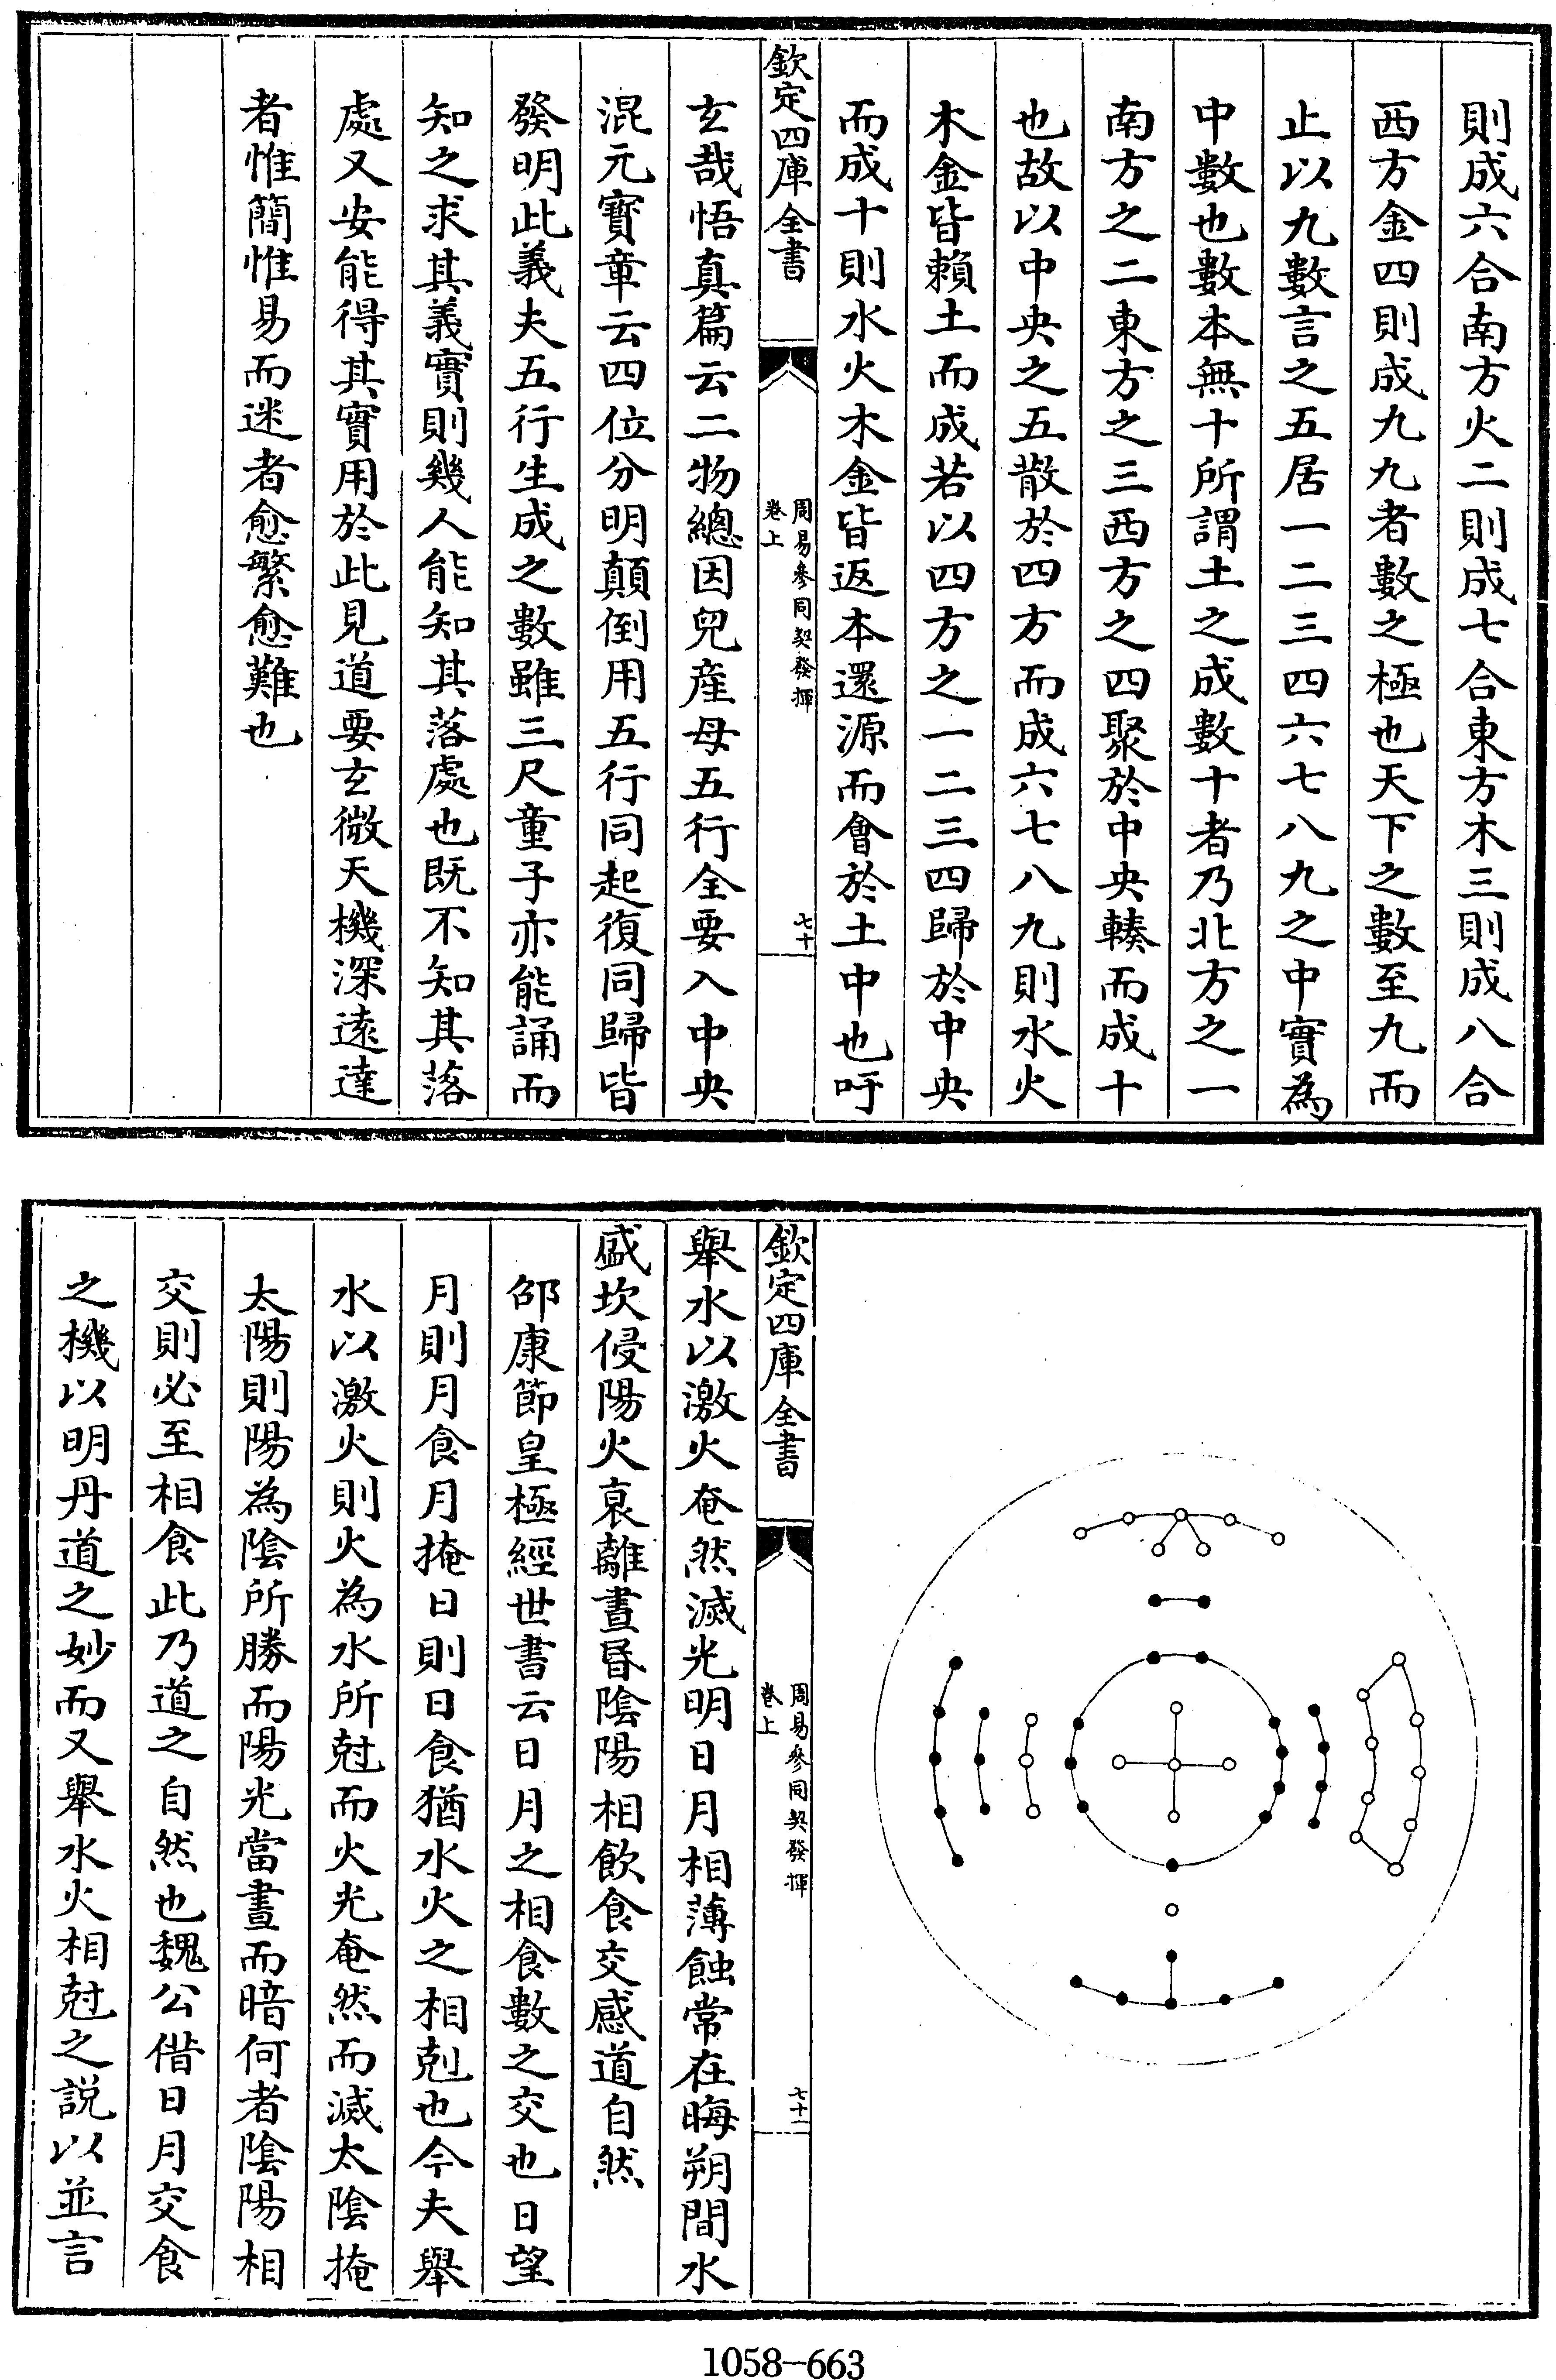 則成六合南方火二則成七合東方木三則成八合
西方金四則成九九者數之極也天下之數至九而
止以九數言之五居一二三四六七八九之中實為
中數也數本無十所謂土之成數十者乃北方之一
南方之二東方之三西方之四聚於中央輳而成十
也故以中央之五散於四方而成六七八九則水火
木金皆賴土而成若以四方之一二三四歸於中央
而成十則水火木金皆返本還源而會於土中也吁
欽定四庫全書
周易參同契發揮
卷上
七十
玄哉悟真篇云二物總因兒産母五行全要入中央
混元寳章云四位分明顛倒用五行同起復同歸皆
發明此義夫五行生成之數雖三尺童子亦能誦而
知之求其義實則幾人能知其落處也既不知其落
處又安能得其實用於此見道要玄微天機深逺達
者惟簡惟易而迷者愈繁愈難也
欽定四庫全書
周易參同契發揮
卷上
七十一
舉水以激火奄然滅光明日月相薄蝕常在晦朔間水
盛坎侵陽火衰離晝昬陰陽相飲食交感道自然
邵康節皇極經世書云日月之相食數之交也日望
月則月食月掩日則日食猶水火之相剋也今夫舉
水以激火則火為水所尅而火光奄然而滅太陰掩
太陽則陽為陰所勝而陽光當晝而暗何者陰陽相
交則必至相食此乃道之自然也魏公借日月交食
之機以明丹道之妙而又舉水火相尅之説以並言
1058-663